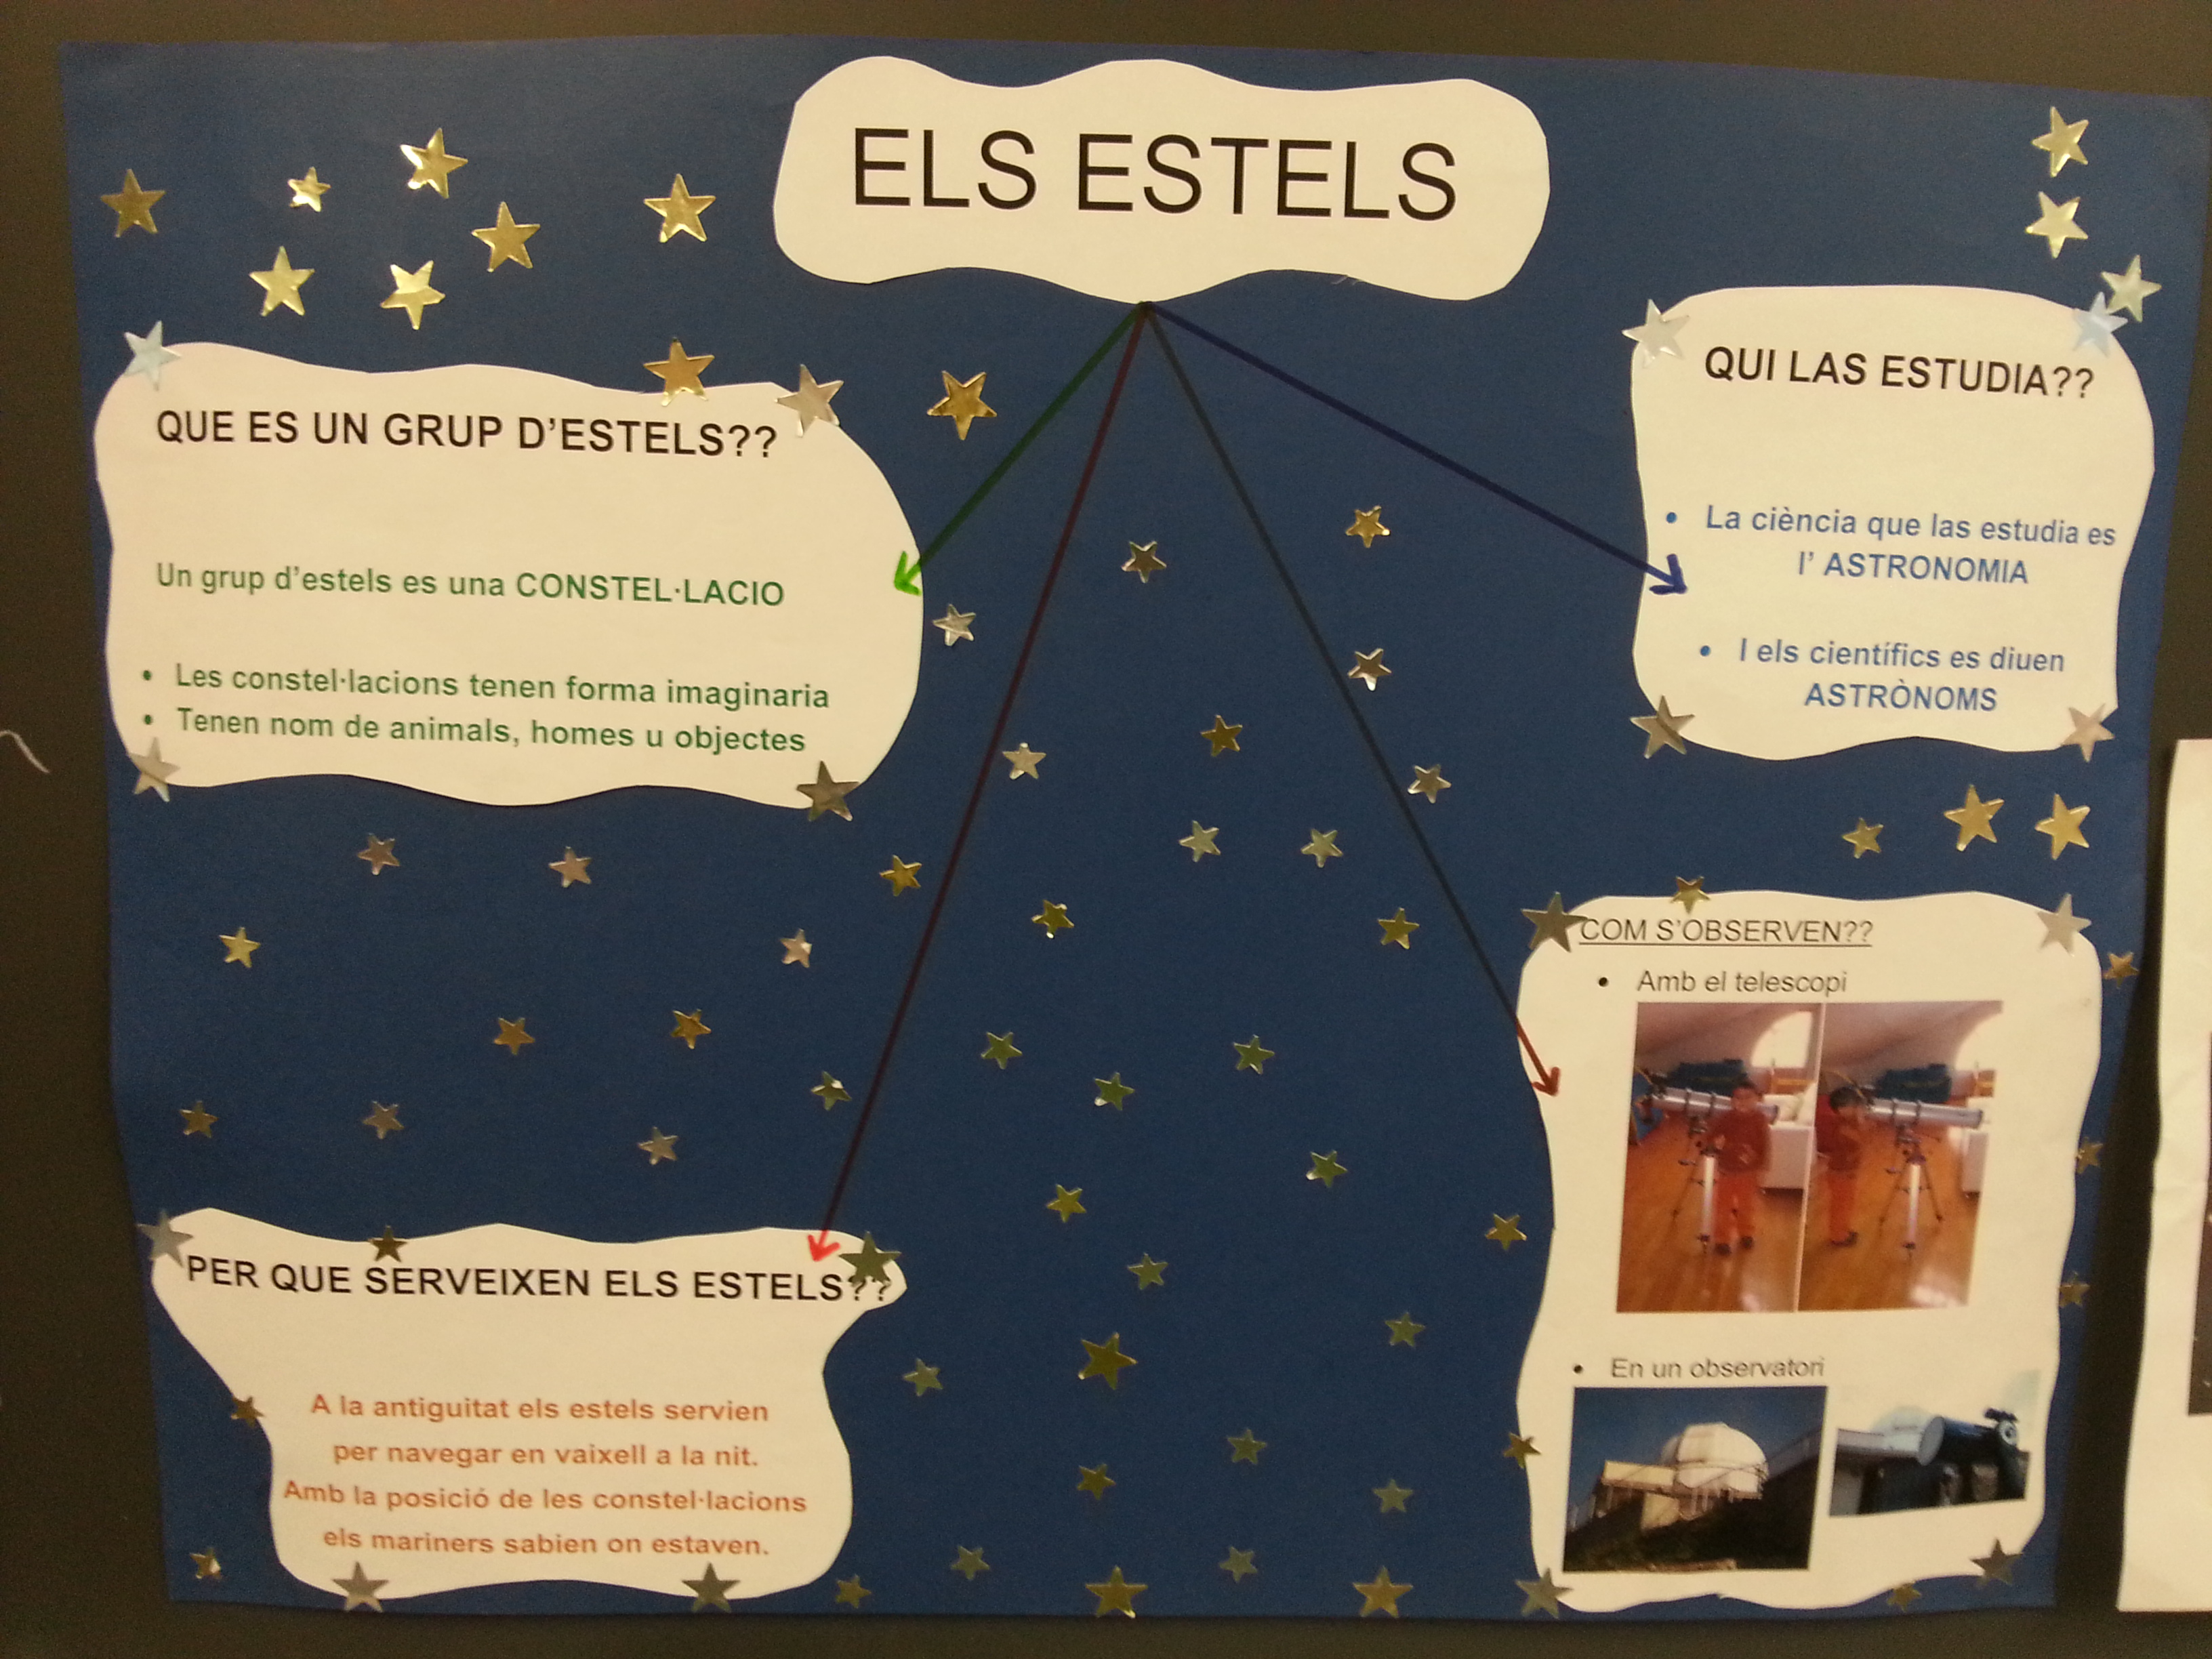 ELS ESTELS
QUE ES UN GRUP D'ESTELS??
Un grup d'estels es una CONSTEL·LACIO
• Les constel·lacions tenen forma imaginaria
• Tenen nom de animals, homes u objectes
QUI LAS ESTUDIA??
• La ciència que las estudia es
l' ASTRONOMIA
• I els científics es diuen
ASTRÒNOMS
PER QUE SERVEIXEN ELS ESTELS??
A la antiguitat els estels servien
per navegar en vaixell a la nit.
Amb la posició de les constel·lacions
els mariners sabien on estaven.
COM S'OBSERVEN??
• Amb el telescopi
• En un observatori